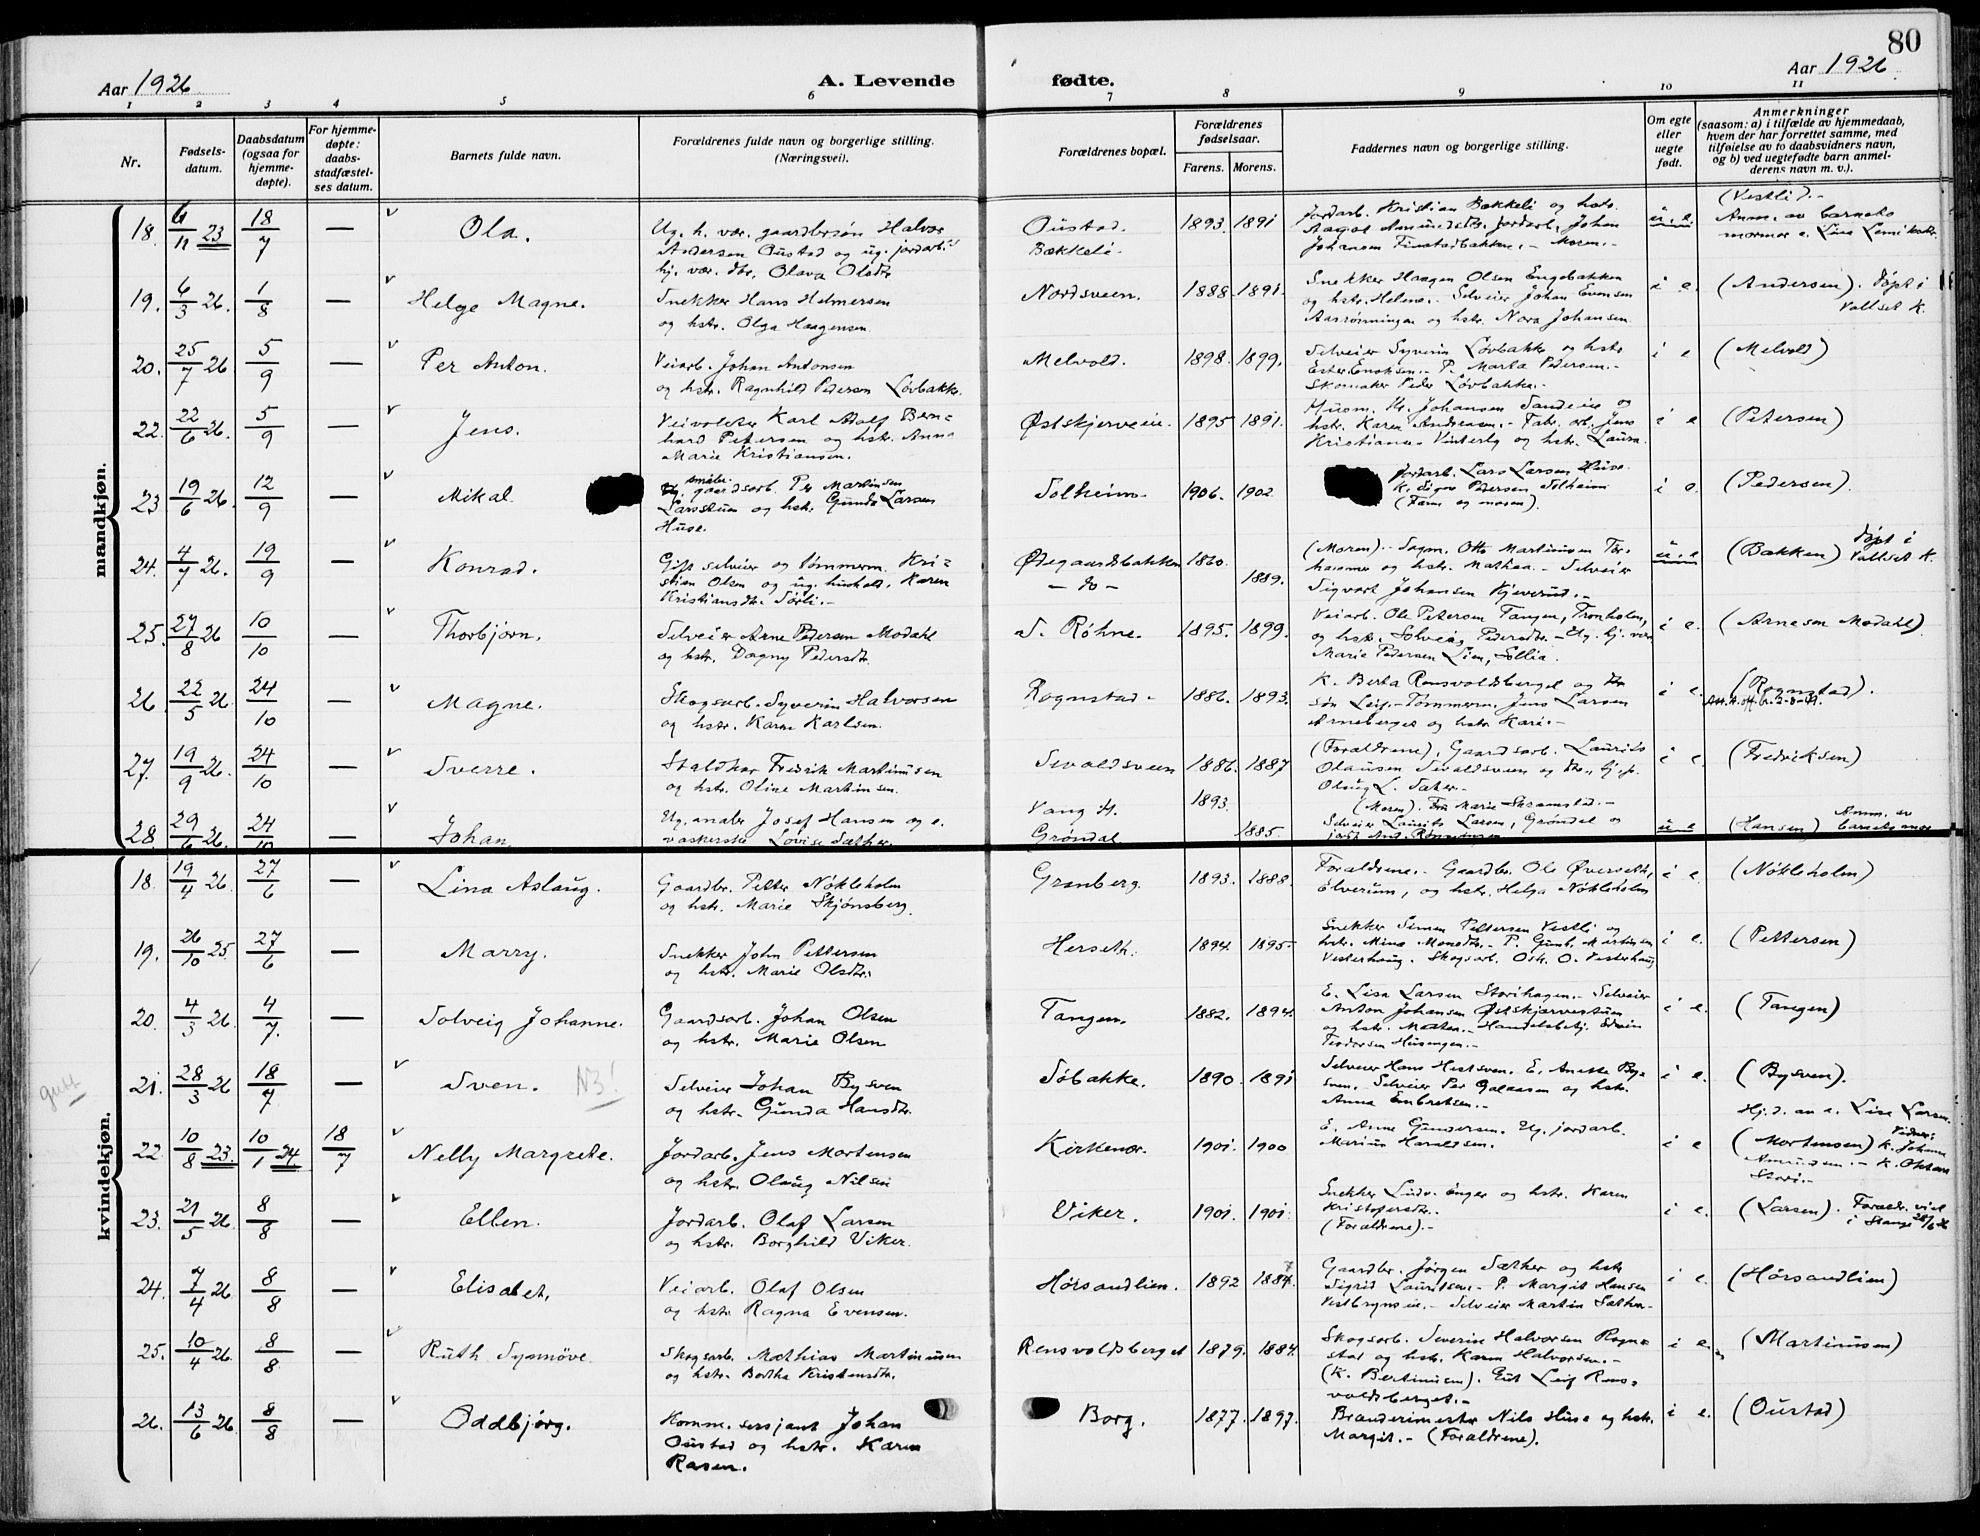 80
Aar 1926
A. Levende fødte.
Aar 1926
1 2 3 4 5 6 7 8 9 10 11
Nr.
Fødsels-datum.
Daabsdatum (ogsaa for hjemme-døpte).
For hjemme-døpte: daabs-stadfæstel-ses datum.
Barnets fulde navn.
Forældrenes fulde navn og borgerlige stilling. (Næringsvei).
Forældrenes bopæl.
Forældrenes fødselsaar.
Farens. Morens.
Faddernes navn og borgerlige stilling.
Om egte eller uegte født.
Anmerkninger
(saasom: a) i tilfælde av hjemmedaab,
hvem der har forrettet samme, med
tilføielse av to daabsvidners navn,
og b) ved uegtefødte barn anmel-
derens navn m. v.).
mandkjøn.
18. 6/11 23 18/7 — Ola. Ug. h. vær. gaardbrsøn Halvor
Andersen Oustad og ug. jordarb.s
hj. vær. dtr. Olava Olsdtr.
Oustad. Bækkeli. 1893. 1891
Jordarb. Kristian Bækkeli og hstr.
Jordarb. Johan
Johansen Finstadbakken. - Moren. -
u. e. (Vestli). -
Anm. av barnets
mormor e. Lina
19. 6/3 26. 1/8 — Helge Magne. Snekker Hans Helmersen
og hstr. Olga Haagensen.
Nordsveen. 1888. 1891.
Snekker Haagen Olsen Engebakken
og hstr. Helene. - Selveier Johan Evensen
Aasrønningen og hstr. Nora Johansen.
i e. (Andersen). Døpt i
Vallset K.
20. 25/7 26 5/9 — Per Anton. Veiarb. Johan Antonsen
og hstr. Ragnhild Pedersen Løvbakke.
Melvold. 1898. 1899.
Selveier Syverin Løvbakke og hstr.
Ester Enoksen. - P. Marta Pedersen. -
Skomaker Peder Løvbakke. -
i e (Melvold)
22. 22/6 26. 5/9 — Jens. Veivokter Karl Adolf Bern=
hard Petersen og hstr. Anna
Marie Kristiansen.
Østskjerveien. 1895 1891.
Husm. Kr. Johansen Sandeie og
hstr. Karen Andersen. - Fabr. arb. Jens
Kristiansen Vinterly og hstr. Laura.
i e (Petersen)
23 19/6 26. 12/9 — Mikal. småbr.
gaardsarb. Per Martinsen
Larsstuen og hstr. Gunda Larsen
Huse.
Solheim. 1906. 1902
Jordarb. Lars Larsen Huse.
K. Signe Pedersen Solheim
(Faren og moren).
i e. (Pedersen).
24. 4/7 26. 19/9 — Konrad. Gift selveier og tømmerm. Kri=
stian Olsen og ug. hushold. Karen
Kristiansdtr. Sørli. -
Ødegaardsbakken 1860.
- do - 1889.
(Moren). - Sagm. Otto Martinusen Tor=
hammer og hstr. Mathea. - Selveier
Sigvart Johansen Kjeverud. -
u. e (Bakken) Døpt i
Vallset K.
25. 27/8 26 10/10 — Thorbjørn. Selveier Arne Pedersen Modahl
og hstr. Dagny Pedersdtr.
S. Røhne. 1895. 1899.
Veiarb. Ole Petersen Tangen, Tronholm,
og hstr. Solveig Pedersdtr. - Ug. hj. vær
Marie Pedersen Lien, Sollia.
i e. (Arnesen Modahl)
26. 22/5 26. 24/10 — Magne. Skogsarb. Syverin Halvorsen
og hstr. Karen Karlsen.
Rognstad. 1886. 1893.
K. Berta Rensvoldsberget og
søn Leif. - Tømmerm. Jens Larsen
Arneberget og hstr. Kari. -
i e. (Rognstad).
27. 19/9 26. 24/10 — Sverre. Staldkar Fredrik Martinusen
og hstr. Oline Martinsen.
Sevaldsveen 1886. 1887
(Forældrene), Gaardsarb. Laurits
Olausen Sevaldsveen og
Olaug L. Sæter.
i e. (Fredriksen)
28. 29/6 26. 24/10 — Johan Ug. maler Josef Hansen og e.
vaskerske Lovise Sæther.
Vang H. 1893.
Grøndal. 1885.
(Moren). Fru Marie Skramstad. -
Selveier Laurits Larsen, Grøndal og
u. e (Hansen) Anm. av
barnets mor
kvindekjøn.
18. 19/4 26. 27/6 — Lina Aslaug. Gaardbr. Petter Nøkleholm
og hstr. Marie Skjønsberg.
Granberg. 1893. 1888.
Forældrene. - Gaardbr. Ole Øverseth,
Elverum, og hstr. Helga Nøkleholm
i e. (Nøkleholm)
19. 26/10 25. 27/6 — Marry. Snekker John Pettersen
og hstr. Marie Olsdtr.
Herseth. 1894. 1895
Snekker Simen Pettersen Vestli og
hstr. Mina Monsdtr. - P. Gunh. Martinsen
Vesterhaug. Skogsarb. Osk. O. Vesterhaug
i e. (Pettersen)
20. 4/3 26. 4/7. — Solveig Johanne. Gaardsarb. Johan Olsen
og hstr. Marie Olsen
Tangen. 1882. 1894.
E. Lisa Larsen Storihagen. - Selveier
Anton Johansen Østskjærvestuen
og hstr. Marten. - Handelsbetj. Edvin
Teodorsen Husengen. -
i e. (Tangen)
gutt
21. 28/3 26 18/7 — Sven. N3! Selveier Johan Bysven
og hstr. Gunda Hansdtr.
Søbakke. 1890. 1891
Selveier Hans Hestsven. E. Anette By=
sven. Selveier Per Galaasen og hstr.
Anna Embretsen. -
i e. (Bysven).
22 10/8 23. 10/1 24 18/7 Nelly Margrete. Jordarb. Jens Mortensen
og hstr. Olaug Nilsen
Kirkenær. 1901. 1900
E. Anne Gundersen. Ug. jordarb.
Marius Haraldsen.
i e Hj. d. av e. Lise Larsen.
(Mortensen) Vidner: K. Johanne
Amundsen. - K. Oktava
23. 21/5 26. 8/8 — Ellen. Jordarb. Olaf Larsen
og hstr. Borghild Viker.
Viker. 1901. 1901.
Snekker Ludv. Enger og hstr. Karen
Kristofersdtr.
(Forældrene). -
i e. (Larsen). Forældr. viet
i Stange 26/6 26
24. 7/4 26 8/8 — Elisabet. Veiarb. Olaf Olsen
og hstr Ragna Evensen.
Hørsandlien. 1892 1884.
Gaardbr. Jørgen Sæther og hstr
Sigrid Lauritsen. - P. Margit Hansen
Vestbrynsei. - Selveier Martin Sæther -
i e. (Hørsandlien)
25. 10/4 26. 8/8 — Ruth Synnöve. Skogsarb. Mathias Martinusen
og hstr. Bertha Kristensdtr.
Rensvoldsberget 1879. 1884.
Skogsarb. Severin Halvorsen Rogn=
stad og hstr. Karen Halvorsen. -
(K. Bertinusen). Gut Leif Rens=
voldsberget. -
i e. (Martinusen)
26. 13/6 26. 8/8 — Oddbjörg. Komm. sersjant Johan
Oustad og hstr. Karen
Rasen.
Borg. 1877. 1897.
Branderimester Nils Huse og hstr.
Margit. - (Forældrene).
i e. (Oustad)